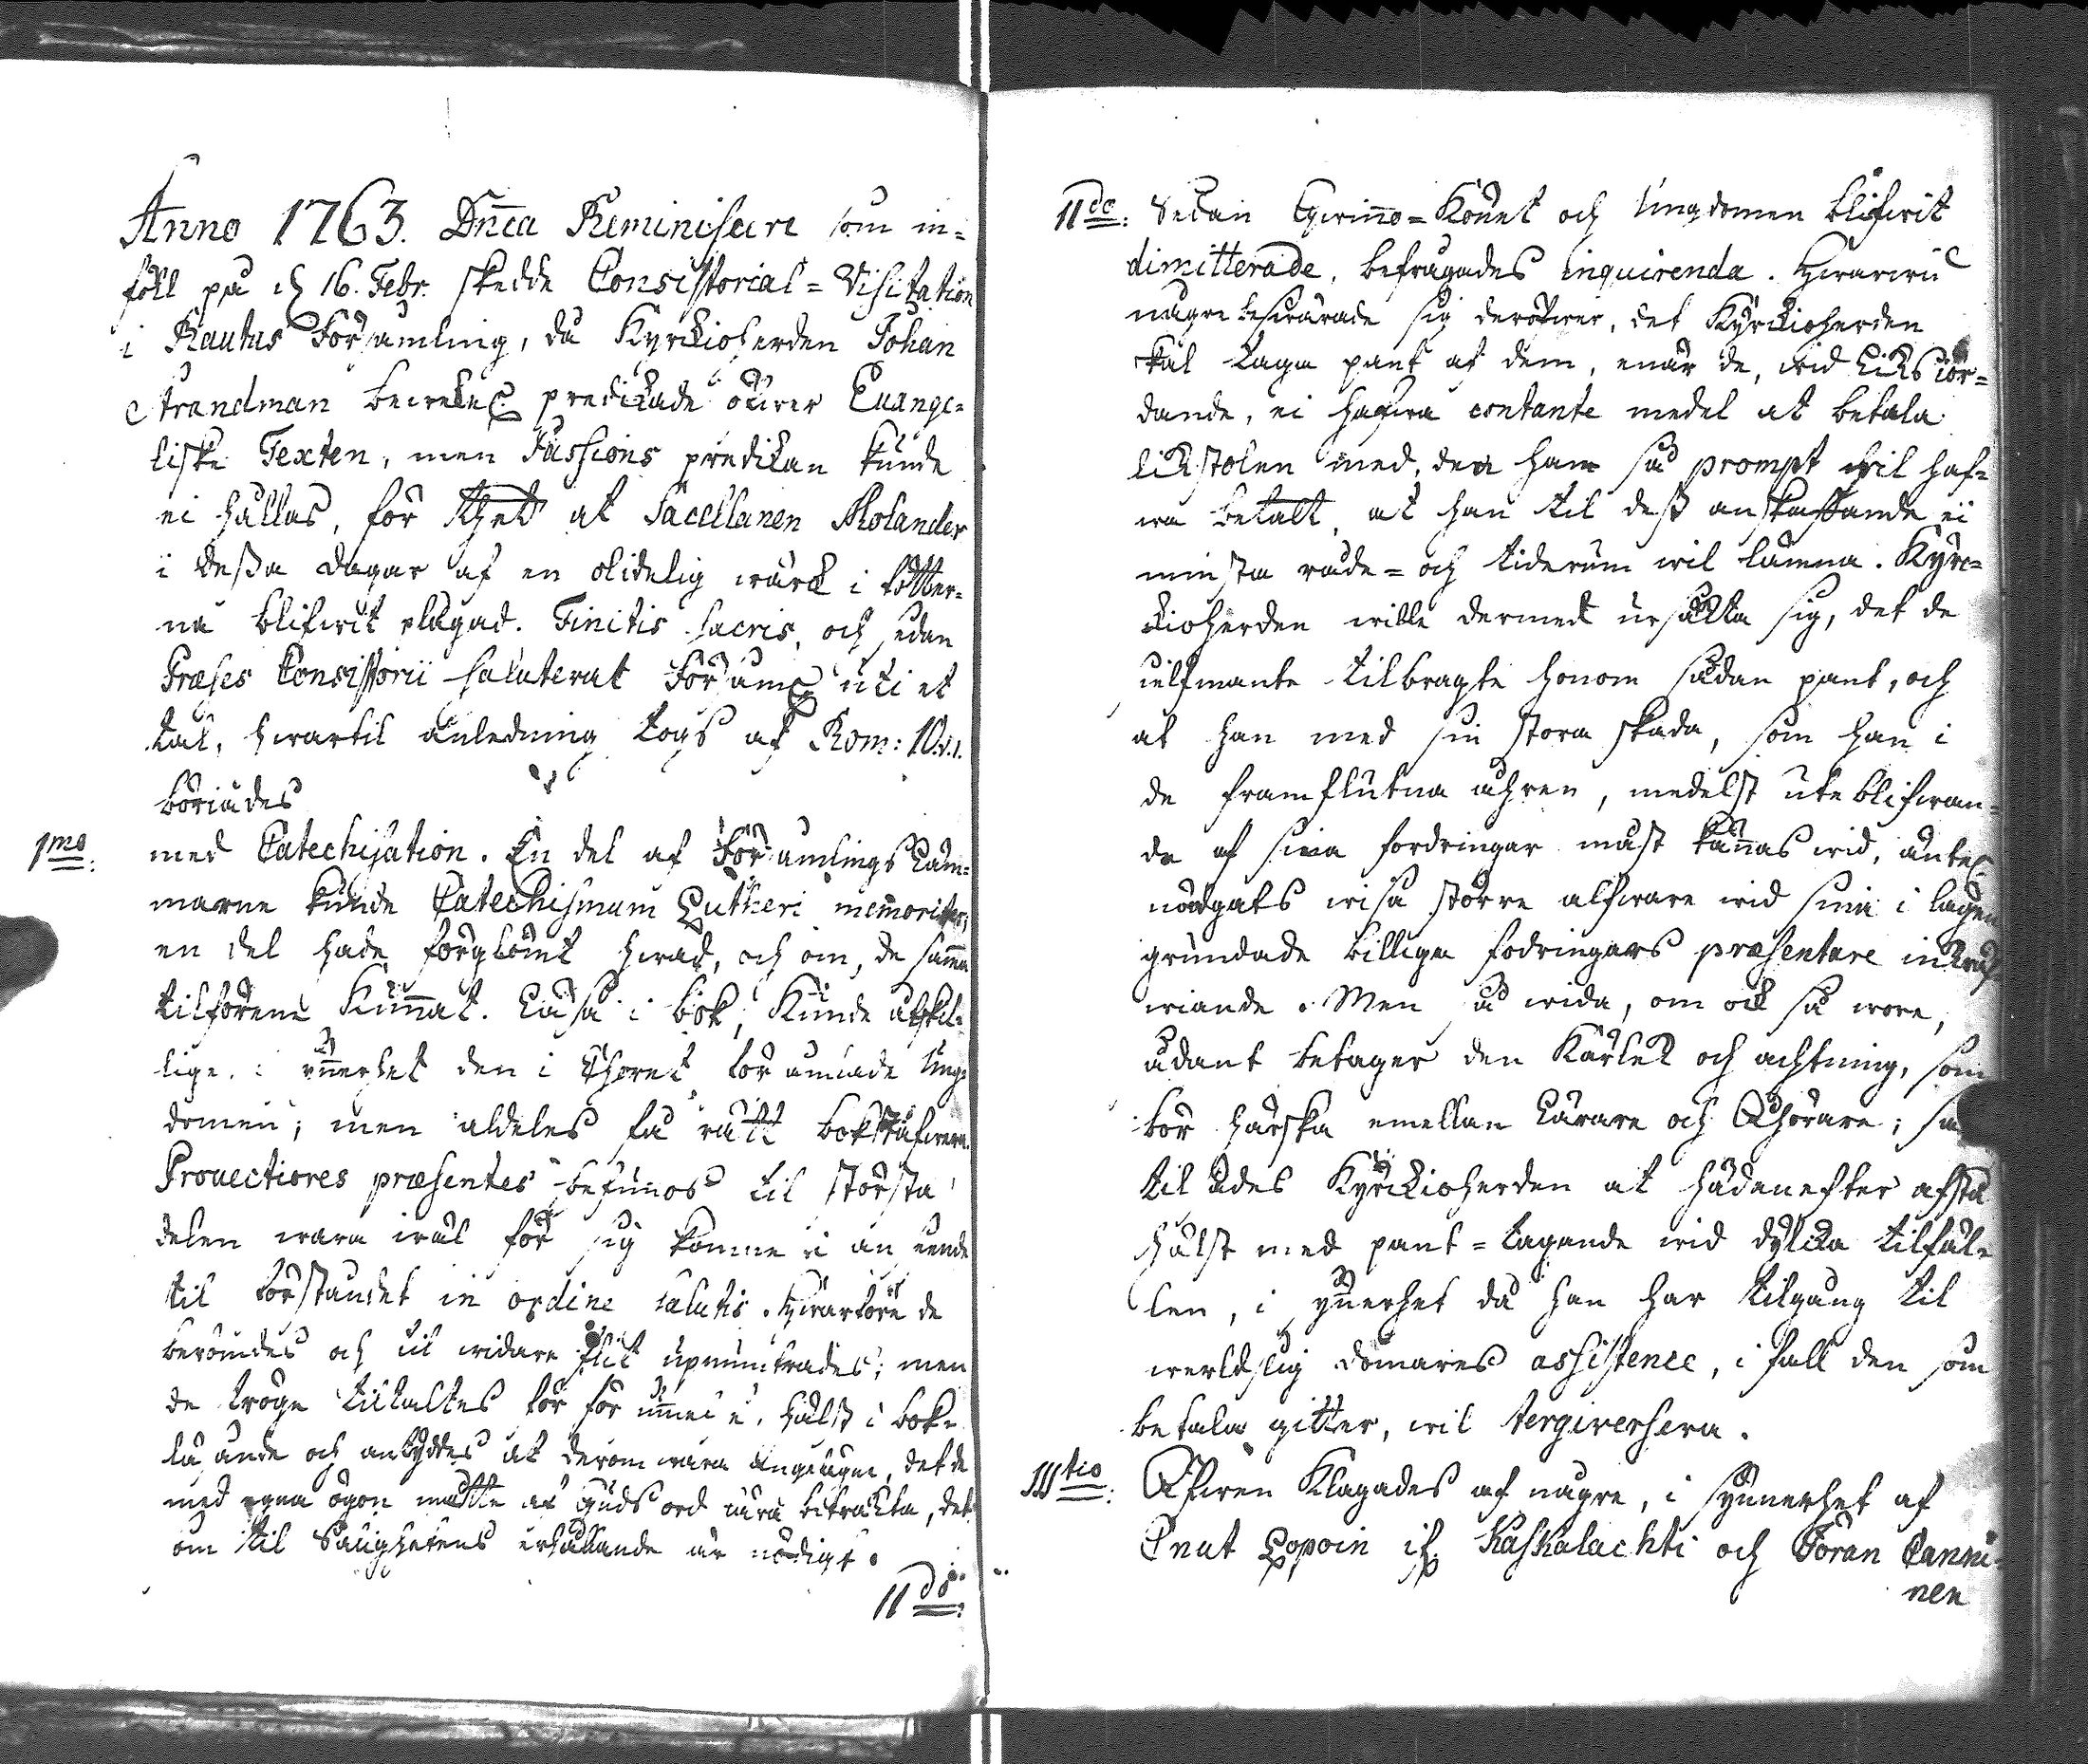 Anno 1763. Dn̄ca Reminiscere som in=
föll på d. 16. Febr. skedde Consistorial=Visitation
i Rautus Församling, då Kyrckioherden Johan
Strandman predikade öfwer Euange=
liske Texten, men Passions predikan kunde
ei hållas, för thet at Sacellanen Molander
i deßa dagar af en olidelig wärck i fötter=
na blifwit plågad. Finitis sacris, och sedan
Præses Consistorii saluterat Församl. uti et
tal, hwartil anledning togs af Rom: 10. v. 1.
börjades
1mo: med Catechisation. En del af Församlings Lem=
marne kunde Catechismum Lutheri memoriter,
en del hade förglömt hwad, och om, de samma
tilförene kunnat. Läsa i bok, kunde åtskil=
lige, i synnerhet den i Choret församlade Ung=
domen; men aldeles få rätt bokstafwera.
Prouectiores præsentes befunnos til största
delen wara wäl för sig komne i anseende
til förståndet in ordine salutis. Hwarföre de
berömdes och til widare flit upmuntrades; men
de tröge tiltaltes för försummelse, hälst i bok=
läsande och antyddes at derom wara angelägne, det de
med egna ögon måtte af Guds ord betrackta, det
som til Salighetens erhållande är nödigt.
IIdo:
IIdo: Sedan Qwinno=Könet och Ungdomen blifwit
dimitterade, befrågades inquirenda. Hwarwid
någre beswärade sig deröfwer, det Kyrckioherden
skal taga pant af dem, enär de, wid Liks jor=
dande, ei hafwa contante medel at betala
likstolen med, den han så prompt wil haf=
wa betalt, at han til deß anskaffande ei
minsta råde= och tiderum wil lämna. Kyrc=
kioherden wille dermed ursäkta sig, det de
sielfmante tilbragte honom sådan pant, och
at han med sin stora skada, som han i
de framflutna åhren, medelst uteblifwan=
de af sina fordringar måst kännas wid,
nödgats wisa större alfware wid sina i lagen
grundade billiga fodringars præsentare
Men så wida, om ock så wore,
sådant betager den Kärlek och achtning, som
bör härska emellan Lärare och Åhörare; så
tilsades Kyrckioherden at hädanefter afstå
hälst med pant=tagande wid dylika tilfäl=
len, i synnerhet då han har tilgång til
werldslig domares assistence, i fall den som
betala gitter, wil tergiversera.
IIItio: Åfwen klagades af någre, i synnerhet af
Cnut Popoin if. Kaskalachti och Jöran Canni=
nen